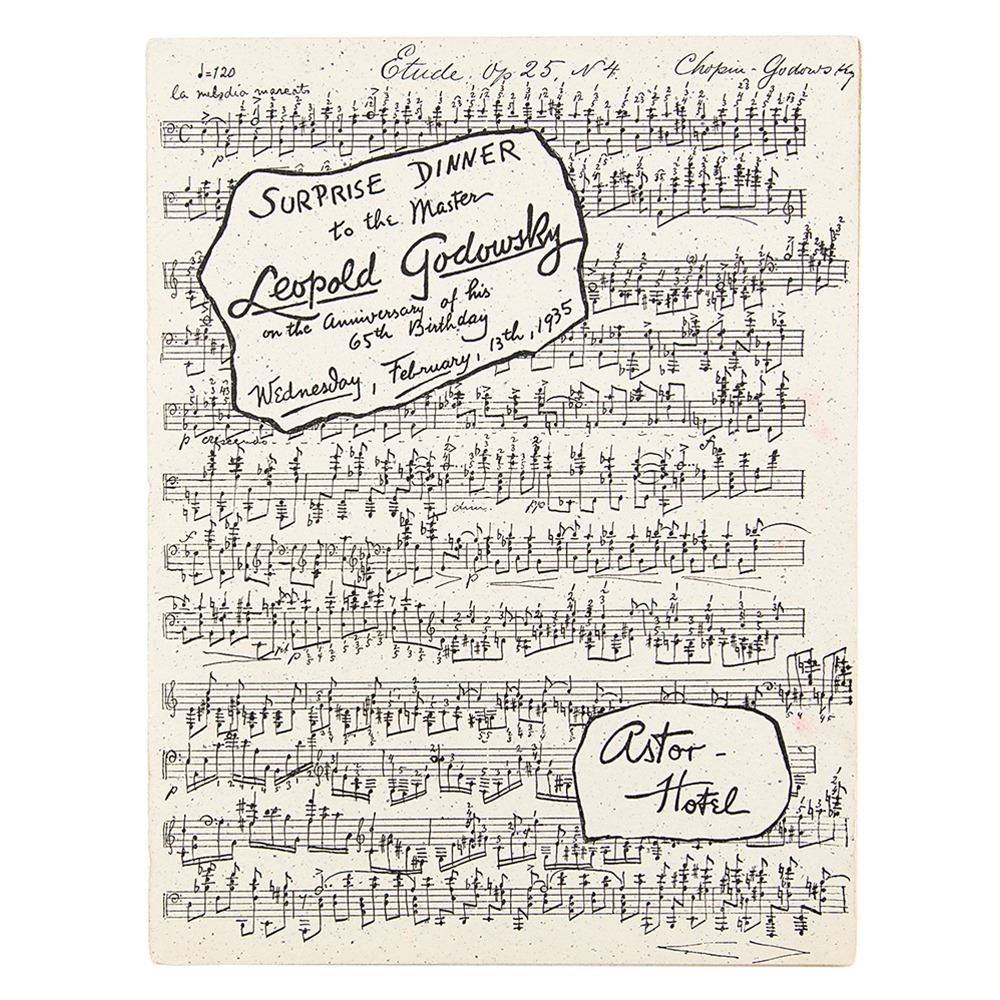 ♩=120
Etude. Op 25. Nº 4.
Chopin-Godowsky
la melodia marcato
p
SURPRISE DINNER
to the Master
Leopold Godowsky
on the Anniversary of his
65th Birthday
Wednesday, February, 13th, 1935
p crescendo
dim.
pp
f
p
p
Astor-
Hotel
p